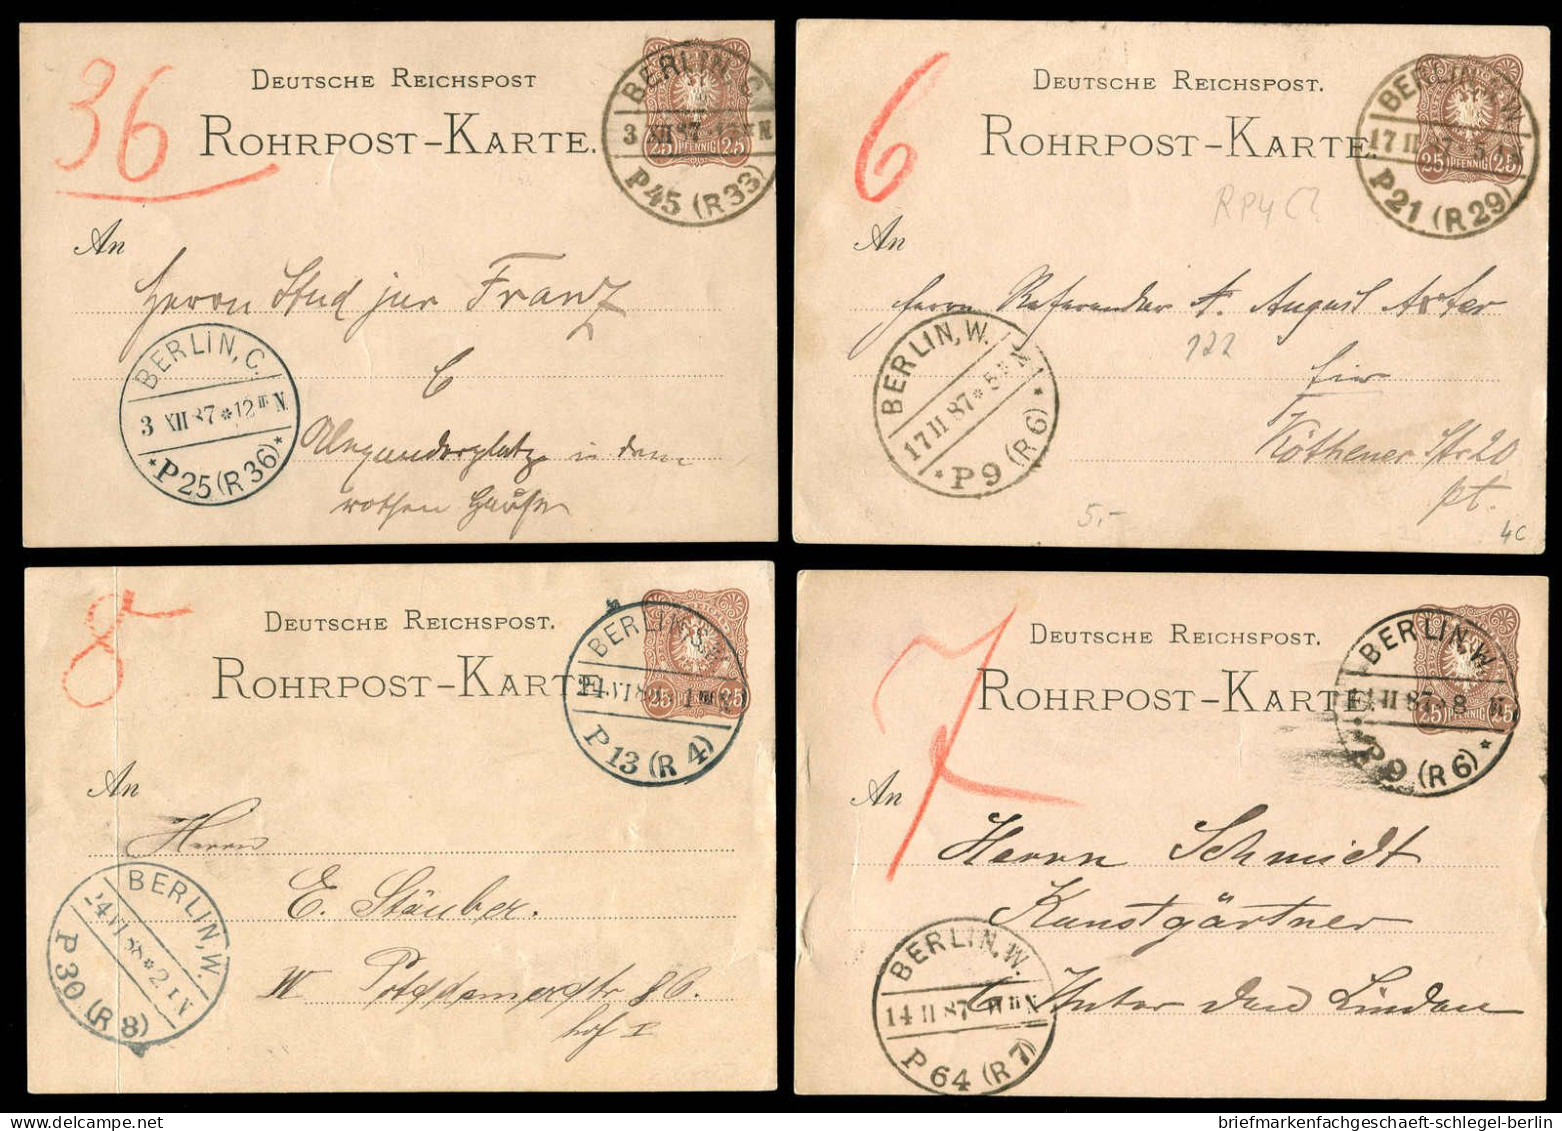 36
DEUTSCHE REICHSPOST
ROHRPOST-KARTE.
25 PFENNIG 25
BERLIN, C.
3 XII 87
P45 (R33)
An
Herrn Stud jur Franz
C
Alexanderplatz in dem
rothen Hause
BERLIN, C.
3 XII 87 * 12 III N.
* P25 (R36) *
6
DEUTSCHE REICHSPOST.
ROHRPOST-KARTE.
25 PFENNIG 25
BERLIN, W.
17 II 87
P21 (R29)
RP4
An
Herrn Referendar August Aster
122
hier
Köthener Str 20
pt.
5.-
4C
BERLIN, W.
17 II 87 * 5 N
* P9 (R6) *
8
DEUTSCHE REICHSPOST.
ROHRPOST-KARTE
25 PFENNIG 25
BERLIN
P13 (R4)
An
Herrn
E. Stäuber.
W Potsdamerstr 86.
hof I
BERLIN, W.
24 VI 88 * 2 I N
P30 (R8)
7
DEUTSCHE REICHSPOST.
ROHRPOST-KARTE
25 PFENNIG 25
BERLIN, W
14 II 87 8
P9 (R6) *
An
Herrn Schmidt
Kunstgärtner
Unter den Linden
BERLIN, W.
14 II 87 N
P64 (R7)
briefmarkenfachgeschaeft-schlegel-berlin